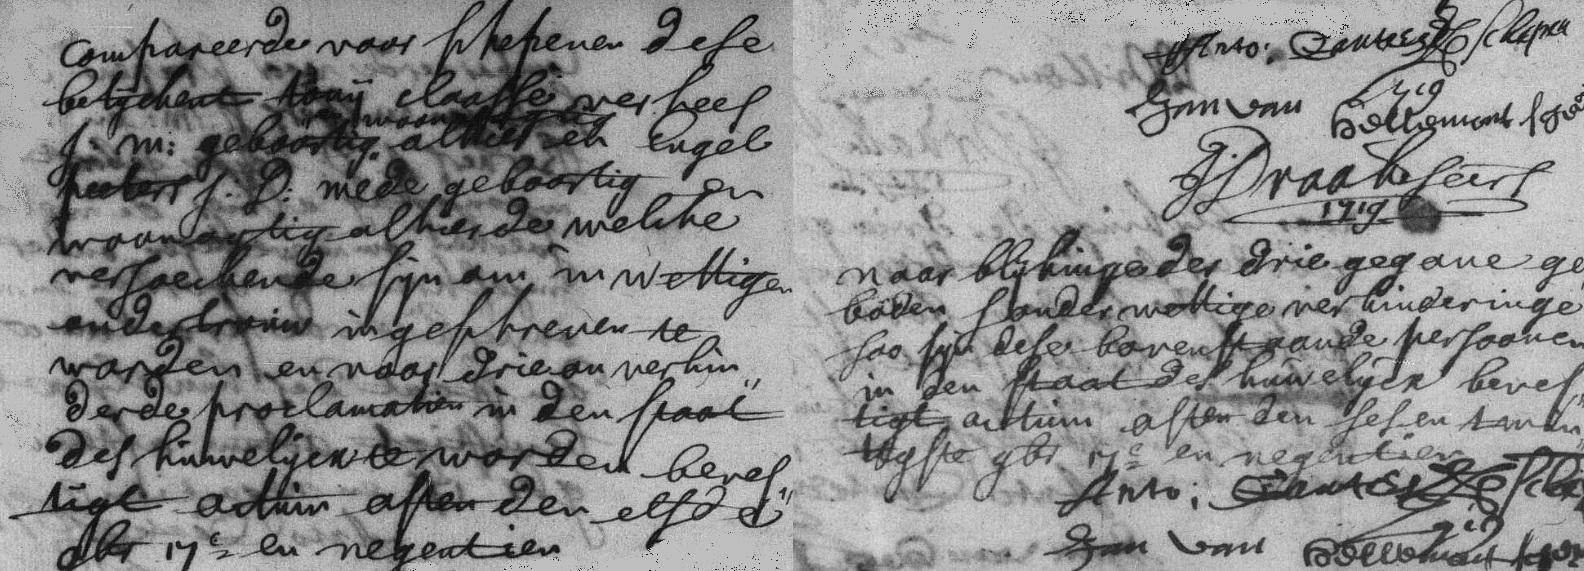 Compareerde voor schepenen dese
betyckent tonij claasse verhees
J: m: geboortig alhier en Engel
peeters J. D: mede geboortig en
woonagtig alhier de welcke
versoeckende sijn om in wettigen
ondertrouw ingeschreven te
worden en naar drie onverhin„
derde proclamatien in den staat
des huwelijcx te worden beves„
tigt actum asten den elfde
9br 17c en negentien
Anto: Schepen
1719
Jan van Bollemont
1719
naar blijkinge der drie gegane ge
boden sonder wettige verhinderinge
soo sijn dese bovenstaande persoonen
in den staat des huwelijcx beves„
tigt actum asten den sesentwin„
tigste 9br 17c en negentien
Anto:
1719
Jan van Bollemont